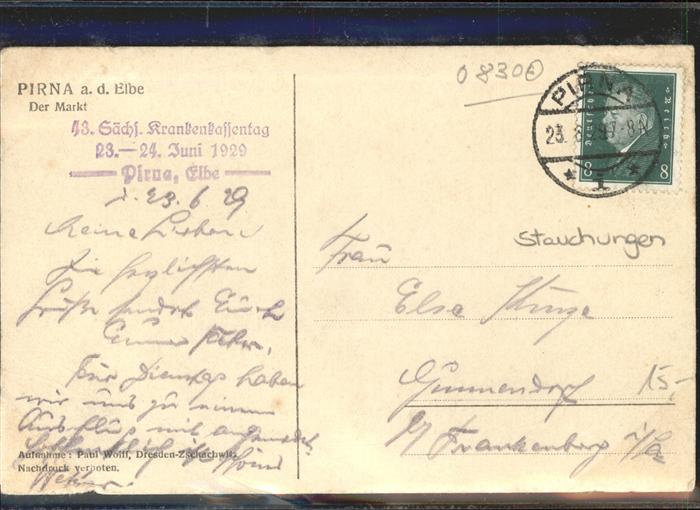 PIRNA a. d. Elbe
Der Markt
43. Sächs. Krankenkassentag
23.—24. Juni 1929
Pirna, Elbe
d. 23.6.29
Meine Lieben!
Die herzlichsten
Grüße sendet Euch
Euer
Für Dienstag haben
wir uns zu einem
Ausflug mit
schönes
Wetter.
Aufnahme: Paul Wolff, Dresden-Zschachwitz
Nachdruck verboten.
0830
PIRNA
23. 6. 29. 7-8 N
* 1 *
Deutsches Reich
8 8
Stauchungen
Frau
Else
Gunnersdorf
b/ Frankenberg i/Sa
15.-